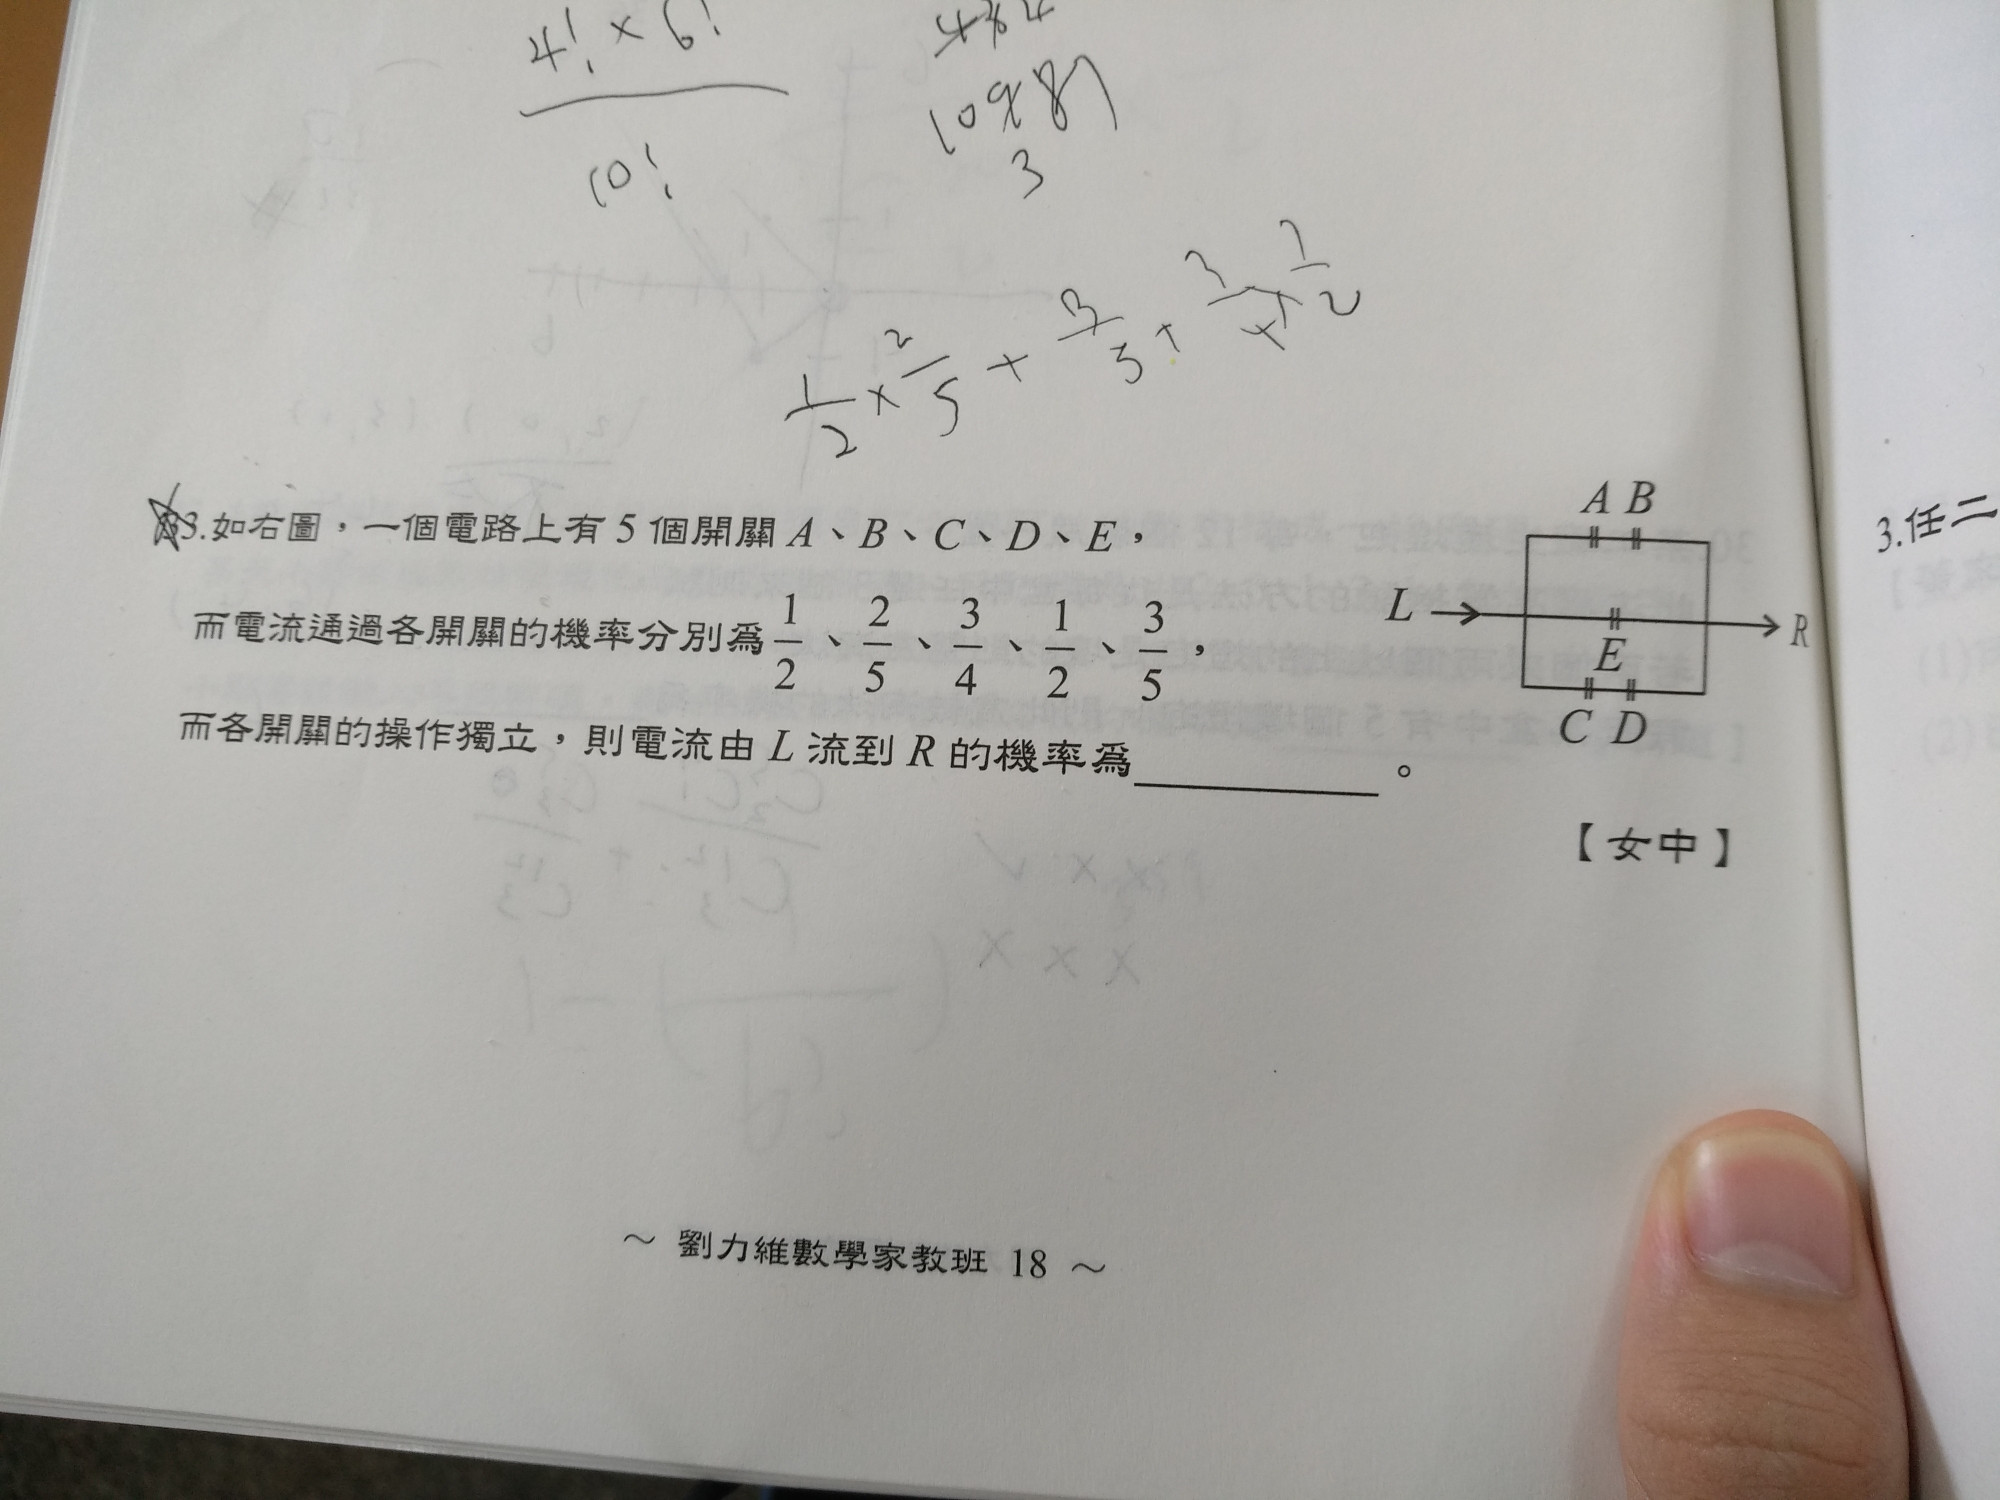 4! × 6!
10!
3
1/2 × 2/5 + 3/5 + 3/4 × 1/2
3.如右圖，一個電路上有 5 個開關 A、B、C、D、E，
而電流通過各開關的機率分別爲 1/2、2/5、3/4、1/2、3/5，
而各開關的操作獨立，則電流由 L 流到 R 的機率爲________。
A B
L
E
R
C D
【女中】
～ 劉力維數學家教班 18 ～
3.任二